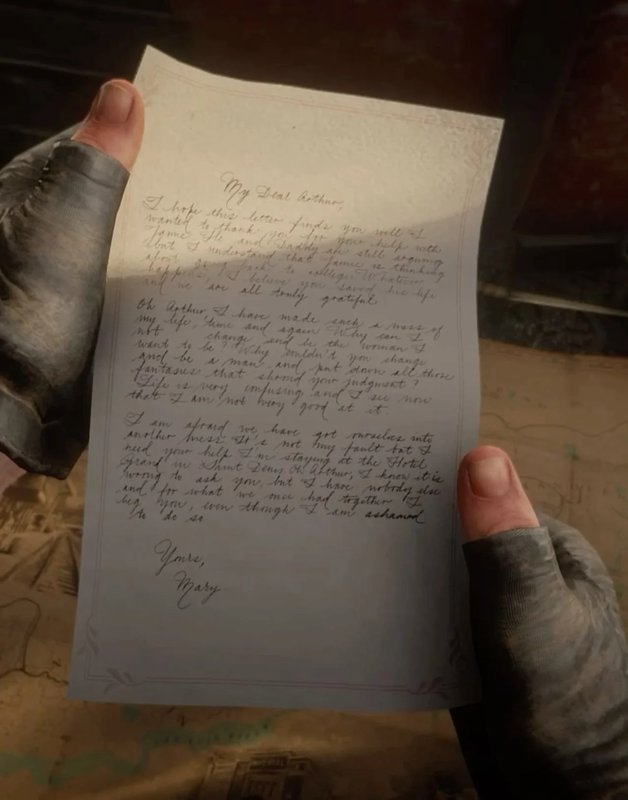 My Dear Arthur,
I hope this letter finds you well. I
wanted to thank you for your help with
Jamie. He and Daddy are still arguing
but I understand that Jamie is thinking
about going back to college. Whatever
happens, I believe you saved his life
and we are all truly grateful.
Oh Arthur, I have made such a mess of
my life, time and again. Why can I
not change and be the woman I
want to be? Why couldn't you change
and be a man, and put down all those
fantasies that shroud your judgment?
Life is very confusing and I see now
that I am not very good at it.
I am afraid we have got ourselves into
another mess. It's not my fault but I
need your help. I'm staying at the Hotel
Grand in Saint Denis. Oh Arthur, I know it is
wrong to ask you, but I have nobody else
and for what we once had together I
beg you, even though I am ashamed
to do so
Yours,
Mary